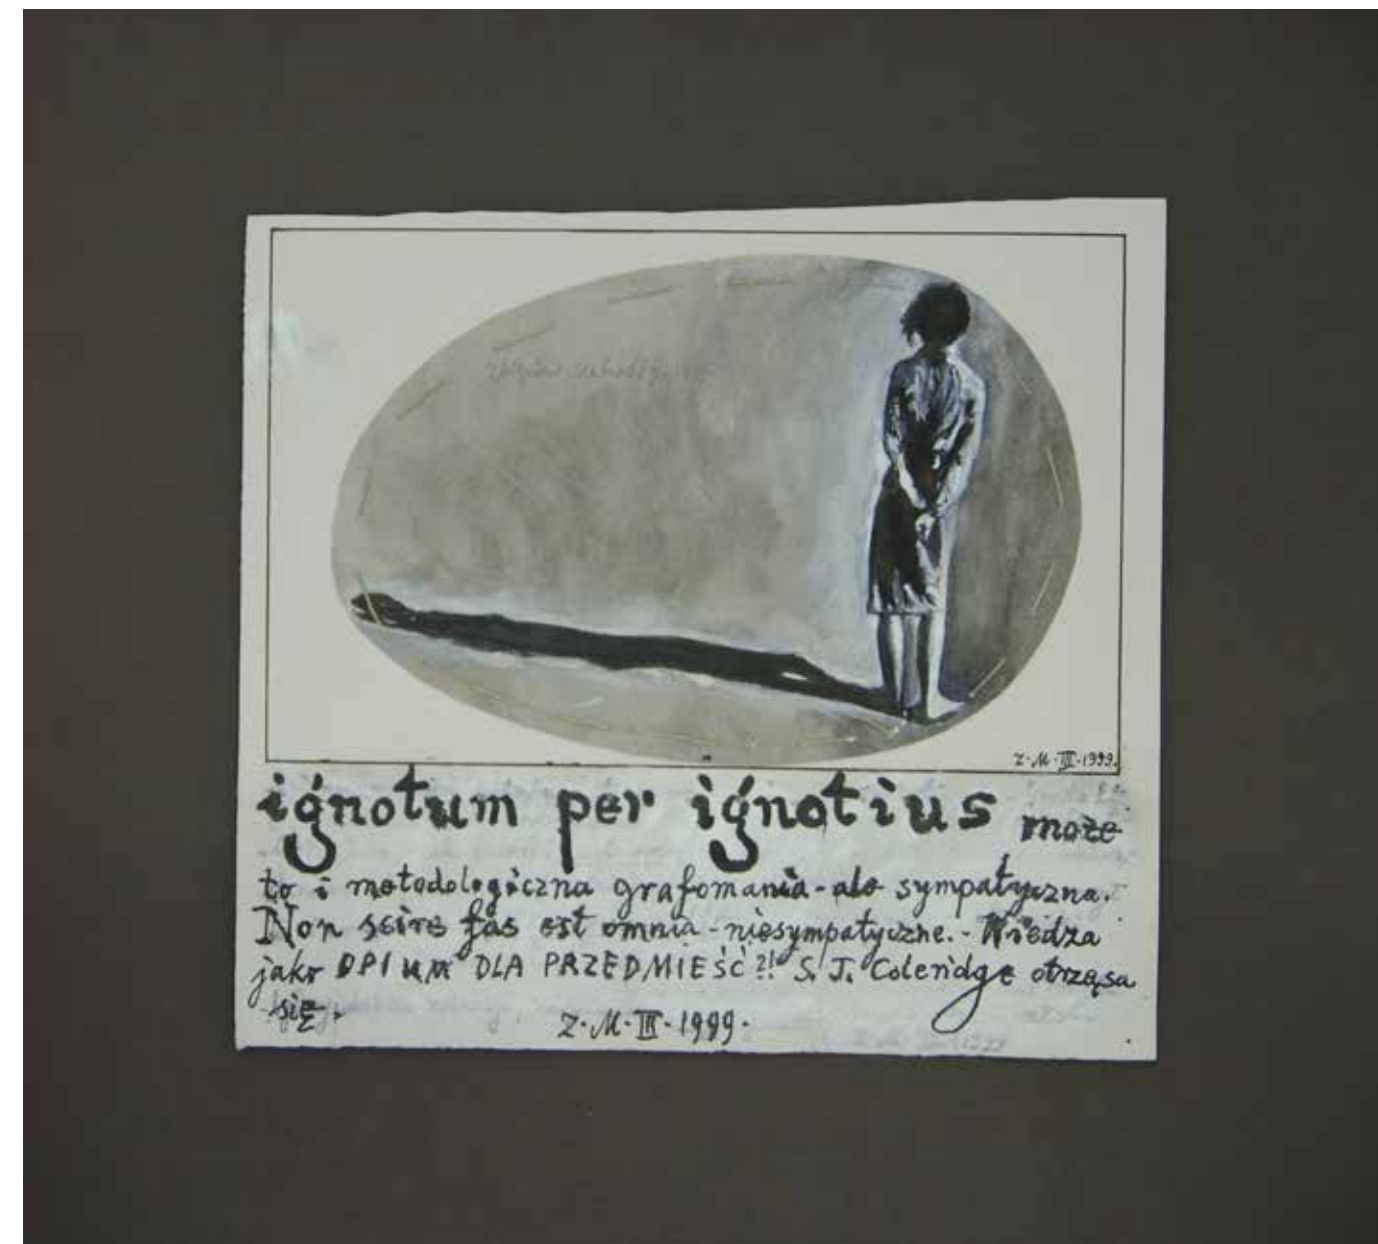 Z·M·III·1999.
ignotum per ignotius może
to i metodologiczna grafomania - ale sympatyczna.
Non scire fas est omnia - niesympatyczne. - Wiedza
jako OPIUM DLA PRZEDMIEŚĆ?! S. J. Coleridge otrząsa
się.
Z·M·III·1999.